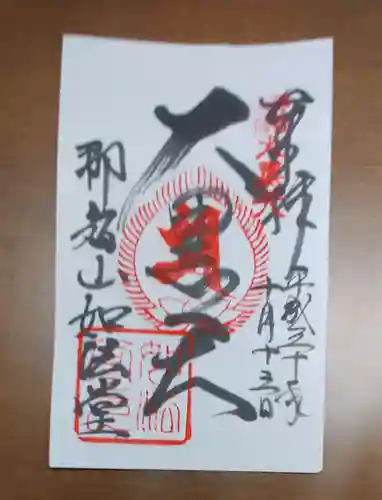 奉拝
平成三十年
十月十三日
大黒天
那智山如法堂